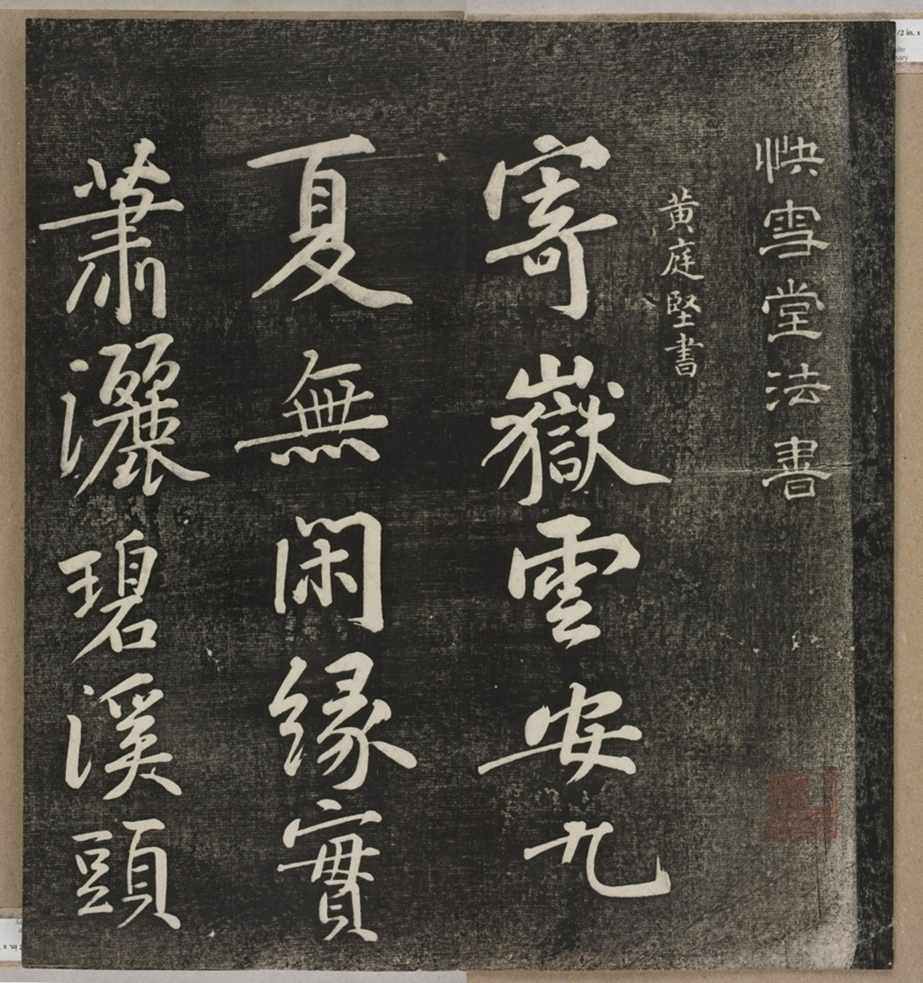 快雪堂法書
黄庭堅書
寄嶽雲安九
夏無閑緣實
蕭灑碧溪頭
/2 in. x